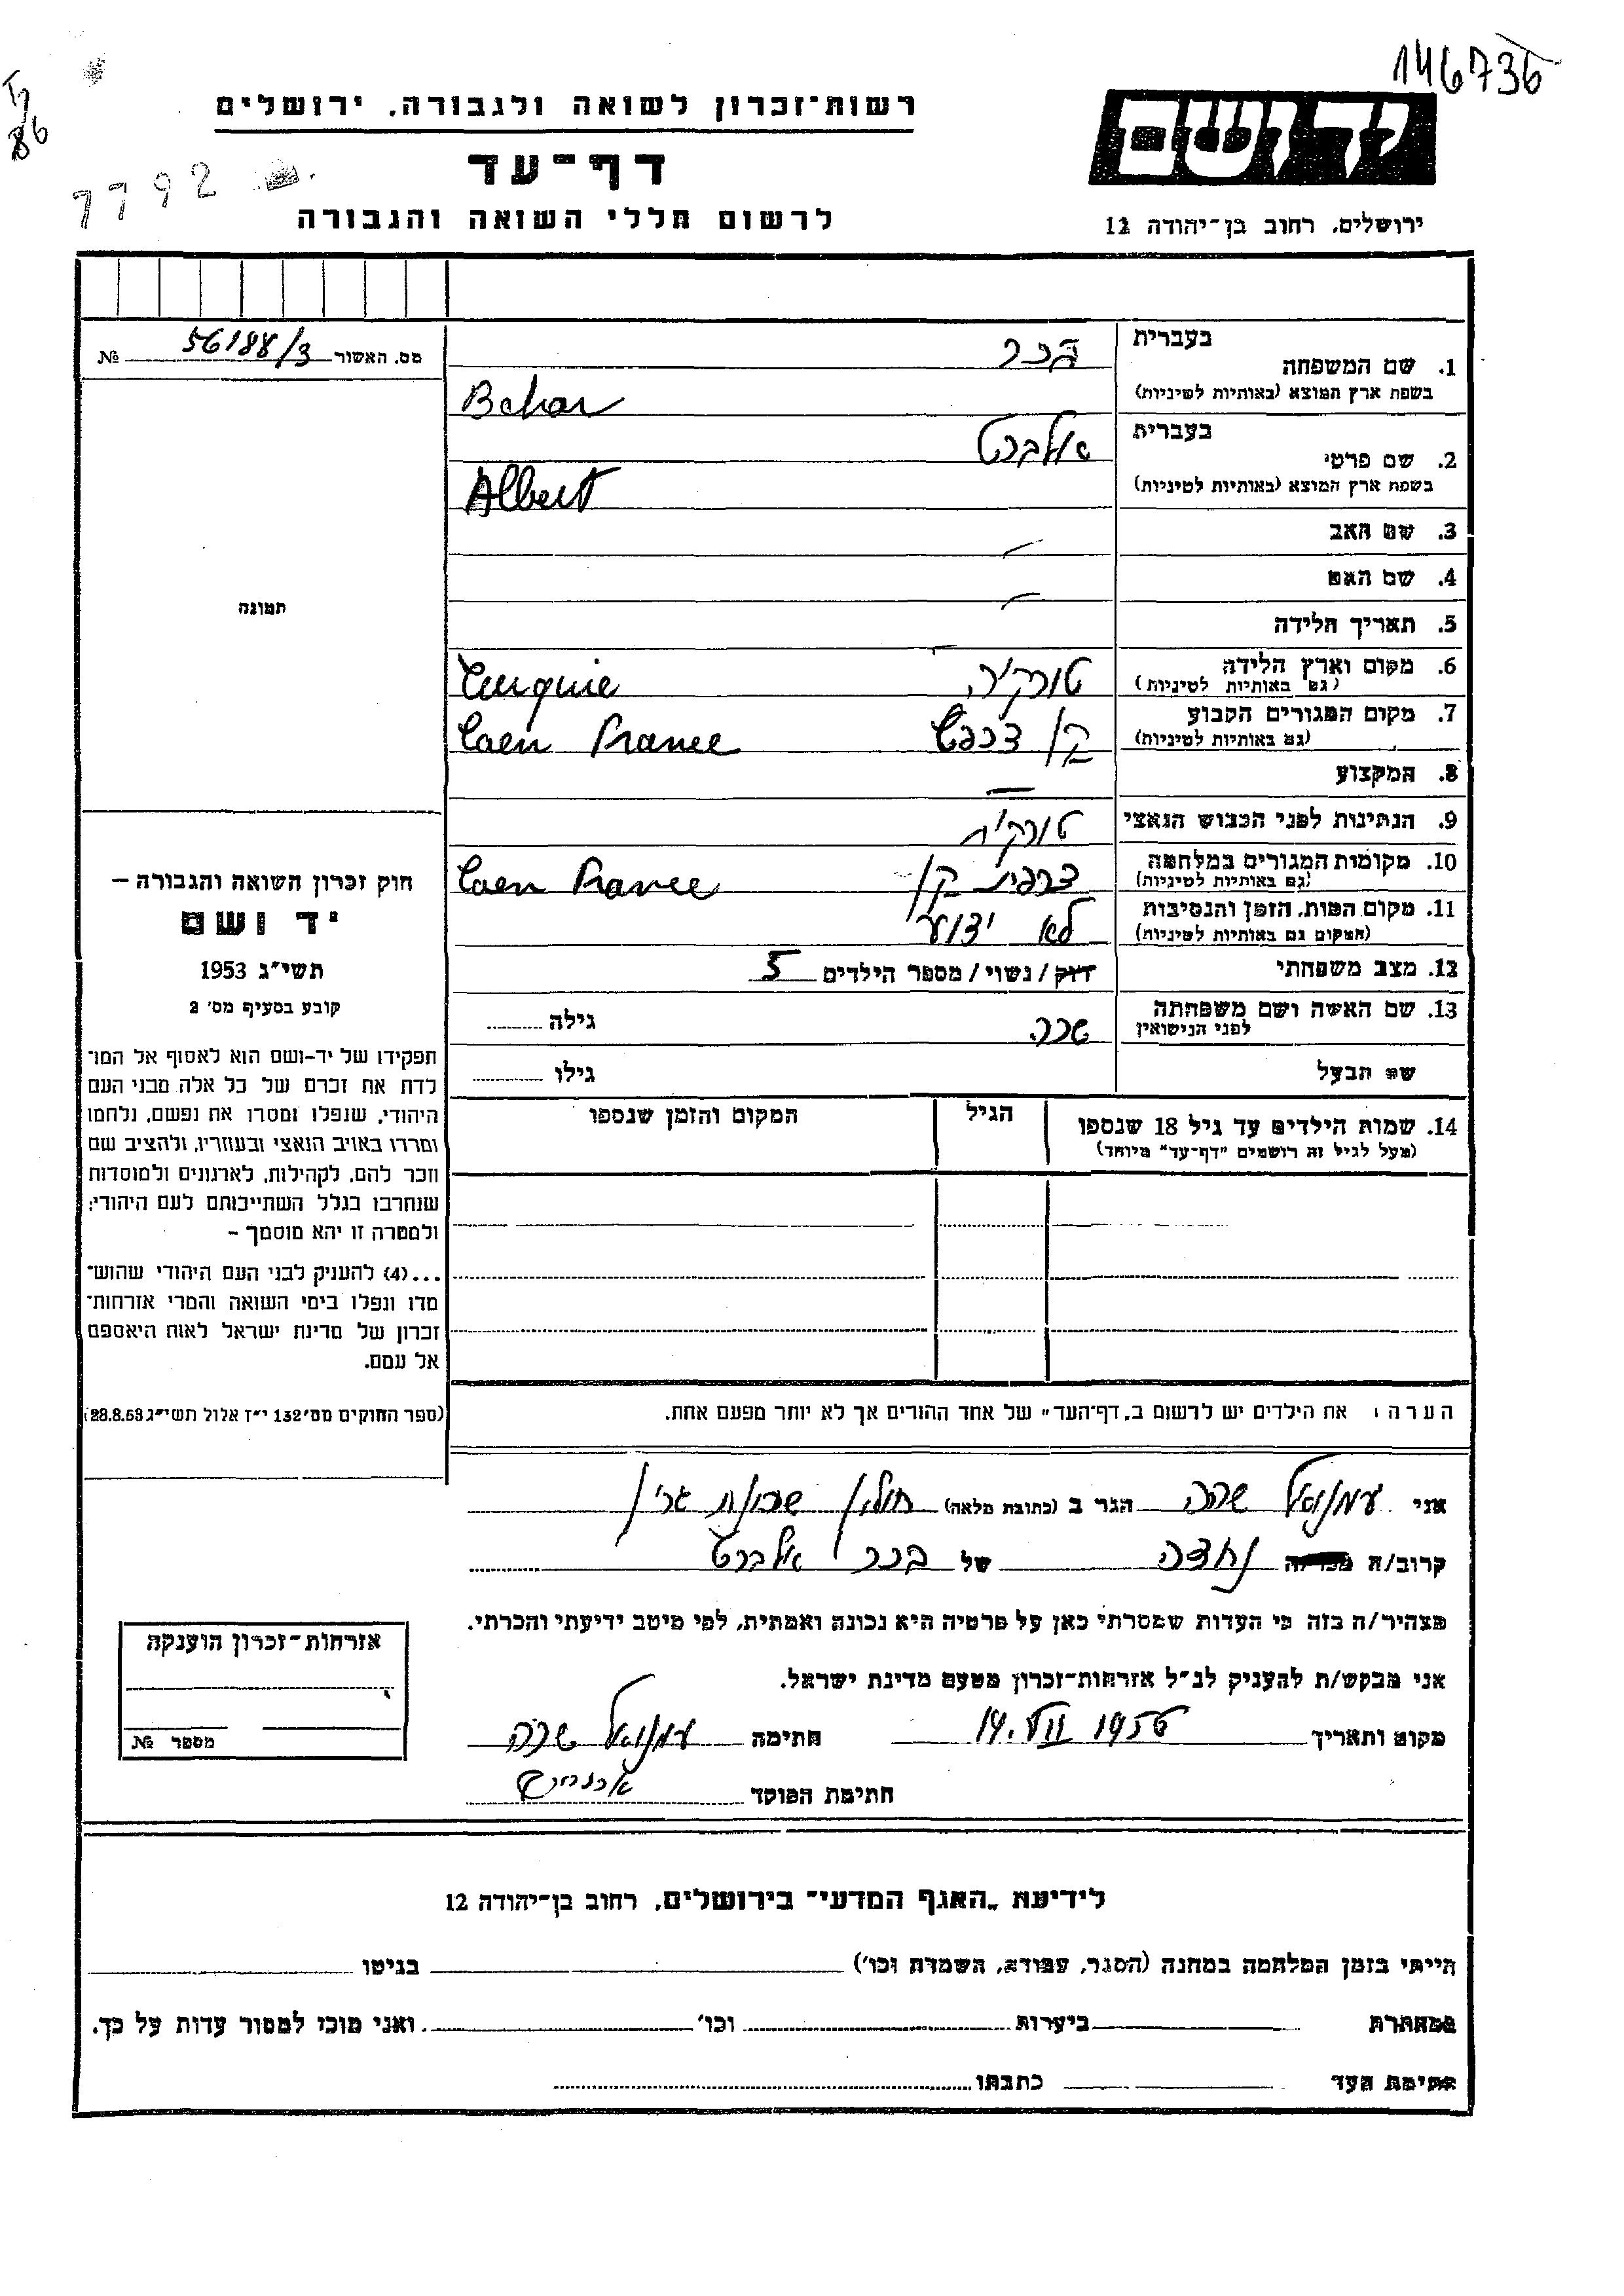 146736
רשות־זכרון לשואה ולגבורה. ירושלים
דף־עד
7792
לרשום חללי השואה והגבורה
יד ושם
ירושלים. רחוב בן־יהודה 12
מס. האשור 56188/3 №
תמונה
בעברית
1. שם המשפחה בכר
בשפת ארץ המוצא (באותיות לטיניות) Behar
בעברית
2. שם פרטי אלברט
בשפת ארץ המוצא (באותיות לטיניות) Albert
3. שם האב —
4. שם האם —
5. תאריך הלידה —
6. מקום וארץ הלידה טורקיה Turquie
(גם באותיות לטיניות)
7. מקום המגורים הקבוע קן צרפת Caen France
(גם באותיות לטיניות)
8. המקצוע —
9. הנתינות לפני הכבוש הנאצי טורקית
10. מקומות המגורים במלחמה צרפת קן Caen France
(גם באותיות לטיניות)
11. מקום המות, הזמן והנסיבות לא ידוע
(המקום גם באותיות לטיניות)
12. מצב משפחתי רוק / נשוי / מספר הילדים 5
13. שם האשה ושם משפחתה שרה גילה
לפני הנישואין
שם הבעל גילו
14. שמות הילדים עד גיל 18 שנספו הגיל המקום והזמן שנספו
(מעל לגיל זה רושמים "דף־עד" מיוחד)
חוק זכרון השואה והגבורה —
יד ושם
תשי״ג 1953
קובע בסעיף מס׳ 2
תפקידו של יד-ושם הוא לאסוף אל המו־
לדת את זכרם של כל אלה מבני העם
היהודי, שנפלו ומסרו את נפשם, נלחמו
ומרדו באויב הנאצי ובעוזריו, ולהציב שם
וזכר להם, לקהילות, לארגונים ולמוסדות
שנחרבו בגלל השתייכותם לעם היהודי;
ולמטרה זו יהא מוסמך –
...(4) להעניק לבני העם היהודי שהוש־
מדו ונפלו בימי השואה והמרי אזרחות־
זכרון של מדינת ישראל לאות היאספם
אל עמם.
(ספר החוקים מס׳ 132 י״ז אלול תשי״ג 28.8.53)
הערה: את הילדים יש לרשום ב„דף־העד" של אחד ההורים אך לא יותר מפעם אחת.
אני עמנואל שרה הגר ב (כתובת מלאה) חולון שכונת גרין
קרוב/ה נחצה של בכר אלברט
מצהיר/ה בזה כי העדות שמסרתי כאן על פרטיה היא נכונה ואמתית, לפי מיטב ידיעתי והכרתי.
אני מבקש/ת להעניק לנ״ל אזרחות־זכרון מטעם מדינת ישראל.
מקום ותאריך 14. VII 1956 חתימה עמנואל שרה
חתימת הפוקד
אזרחות־זכרון הוענקה
מספר №
לידיעת „האגף המדעי" בירושלים, רחוב בן־יהודה 12
הייתי בזמן המלחמה במחנה (הסגר, עבודה, השמדה וכו׳) בגיטו
במחתרת ביערות וכו׳ ואני מוכן למסור עדות על כך.
חתימת העד כתבתו